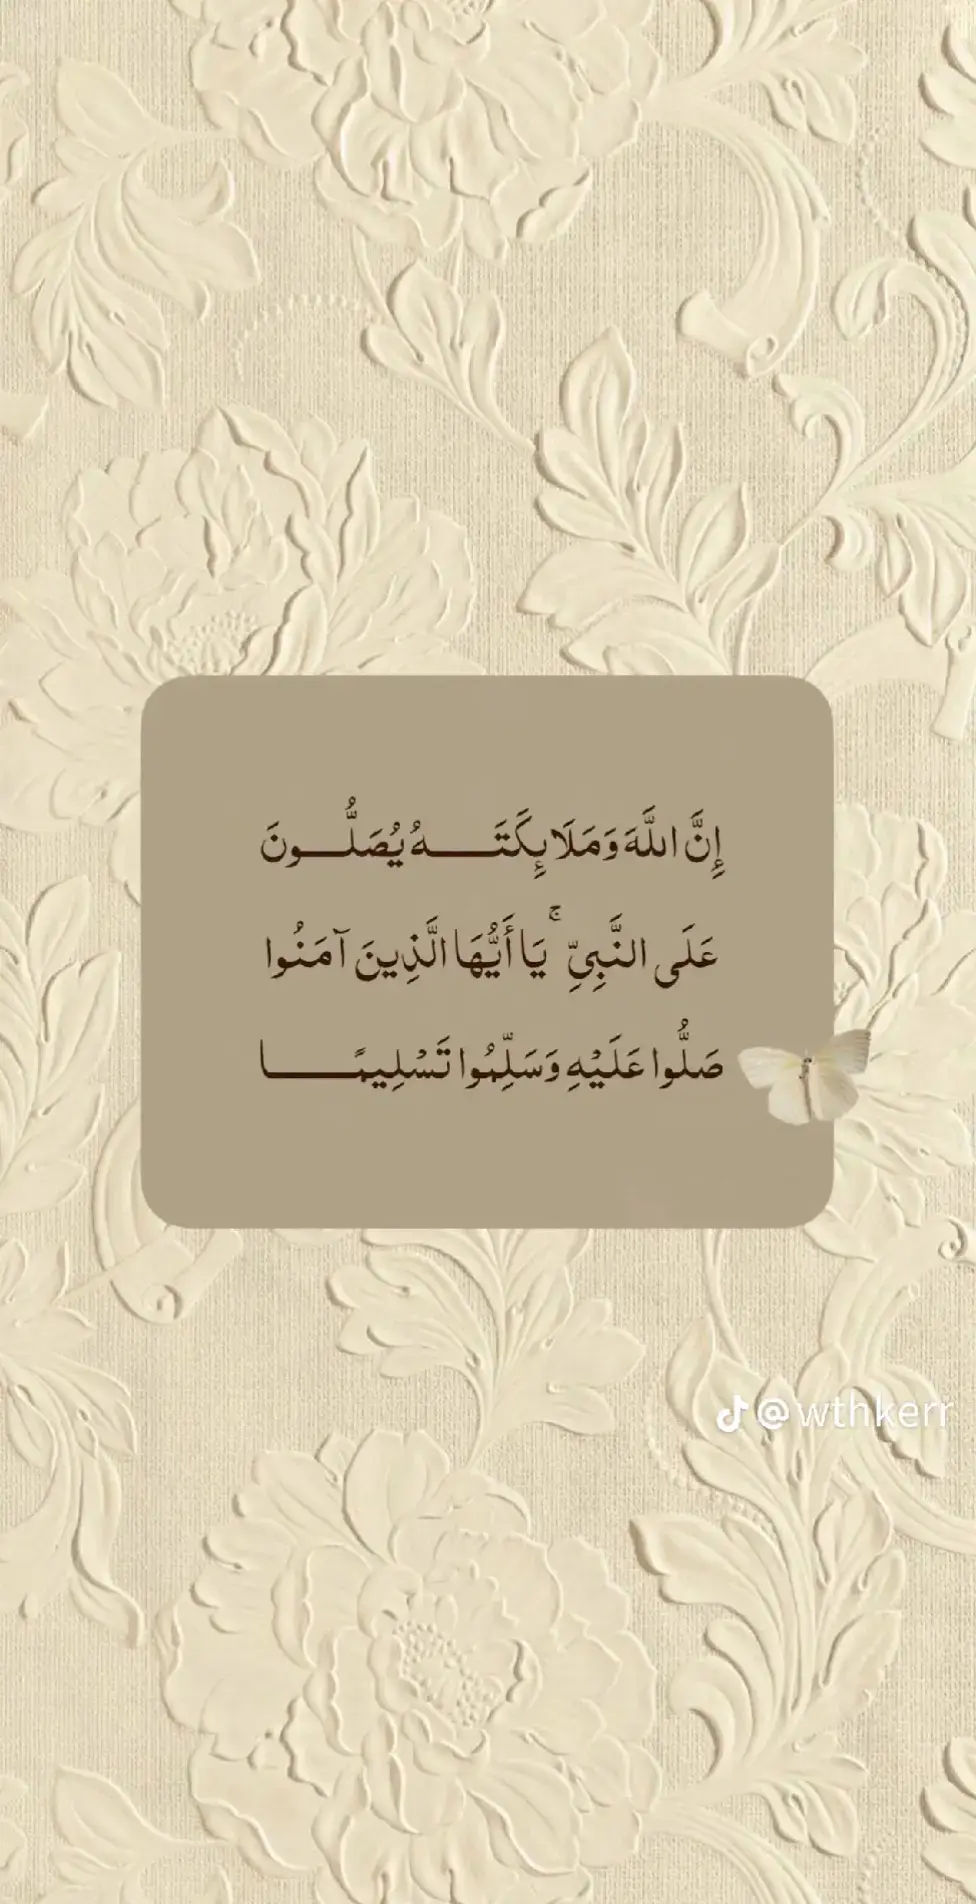 إِنَّ اللَّهَ وَمَلَائِكَتَـــــهُ يُصَلُّـــونَ
عَلَى النَّبِيِّ ۚ يَا أَيُّهَا الَّذِينَ آمَنُوا
صَلُّوا عَلَيْهِ وَسَلِّمُوا تَسْلِيمًـــــا
@wthkerr